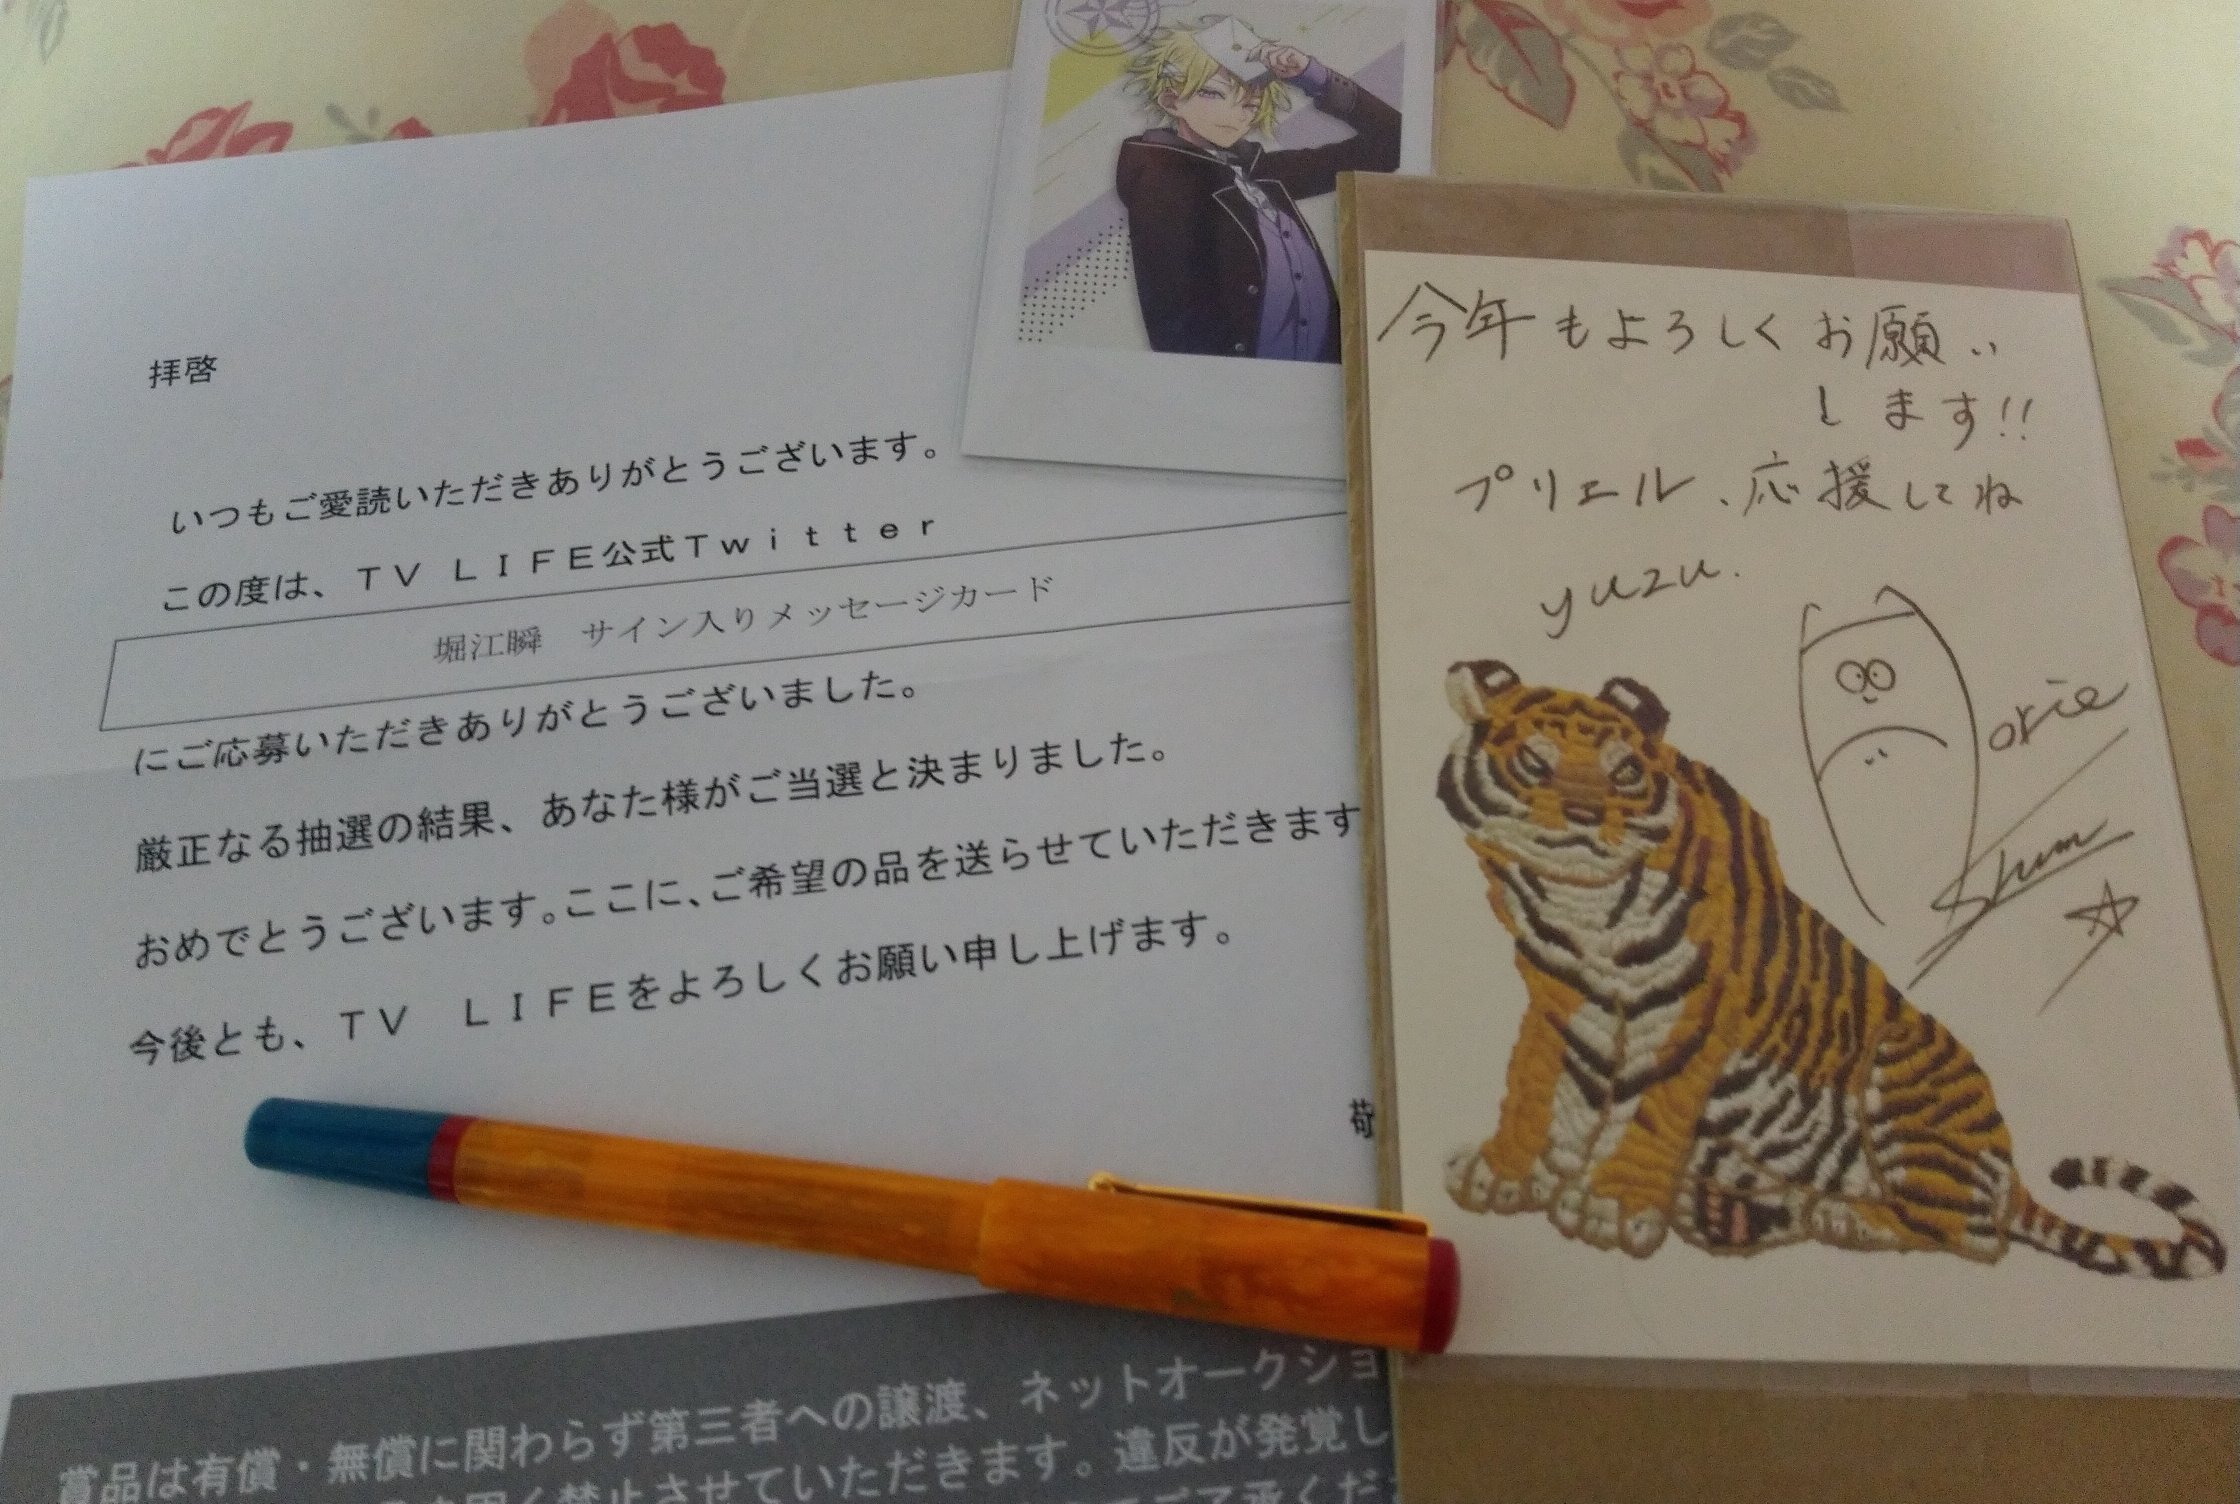 拝啓
いつもご愛読いただきありがとうございます。
この度は、ＴＶ ＬＩＦＥ公式Ｔｗｉｔｔｅｒ
堀江瞬　サイン入りメッセージカード
にご応募いただきありがとうございました。
厳正なる抽選の結果、あなた様がご当選と決まりました。
おめでとうございます。ここに、ご希望の品を送らせていただきます
今後とも、ＴＶ　ＬＩＦＥをよろしくお願い申し上げます。
賞品は有償・無償に関わらず第三者への譲渡、ネットオークショ
禁止させていただきます。違反が発覚し
ご了承くだ
今年もよろしくお願い
します!!
プリエル、応援してね
yuzu.
orie
Shun